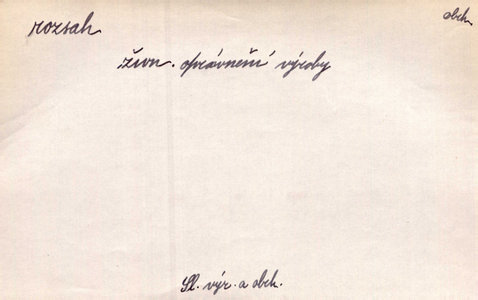 rozsah
obch.
živn. oprávnění výroby
Sl. výr. a obch.